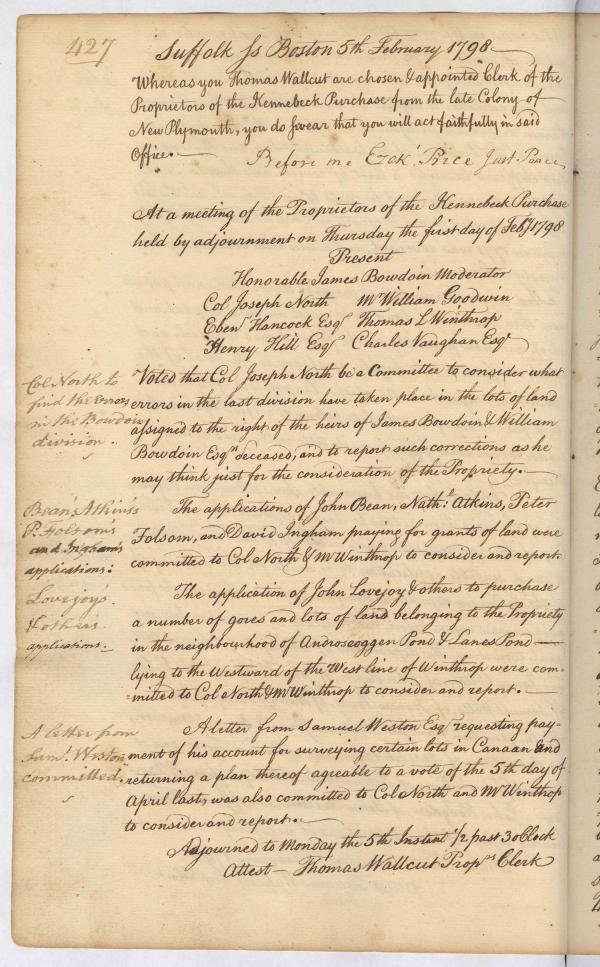 427
Suffolk Ss Boston 5th February 1798
Whereas you Thomas Wallcut are chosen & appointed Clerk of the
Proprietors of the Kennebeck Purchase from the late Colony of
New Plymouth, you do swear that you will act faithfully in said
Office.
Before me Ezekl Price Just Peace
At a meeting of the Proprietors of the Kennebeck Purchase
held by adjournment on Thursday the first day of Feby 1798
Present
Honorable James Bowdoin Moderator
Col Joseph North Mr William Goodwin
Ebenr Hancock Esqr Thomas L Winthrop
Henry Hill Esqr Charles Vaughan Esqr
Col North to
find the errors
in the Bowdoin
division.
Voted that Col Joseph North be a Committee to consider what
errors in the last division have taken place in the lots of land
assigned to the right of the heirs of James Bowdoin & William
Bowdoin Esqrs deceased, and to report such corrections as he
may think just for the consideration of the Propriety.
Bean's Atkins's
P. Folsom's
and Ingham's
applications.
The applications of John Bean, Nathl. Atkins, Peter
Folsom, and David Ingham praying for grants of land were
committed to Col North & Mr Winthrop to consider and report.
Lovejoys'
& others
applications.
The application of John Lovejoy & others to purchase
a number of gores and lots of land belonging to the Propriety
in the neighbourhood of Androscoggen Pond & Lanes Pond
lying to the Westward of the West line of Winthrop were com-
mitted to Col North & Mr Winthrop to consider and report.
A letter from
Saml. Weston
committed.
A letter from Samuel Weston Esqr requesting pay-
ment of his account for surveying certain lots in Canaan and
returning a plan thereof agreable to a vote of the 5th day of
April last, was also committed to Col North and Mr Winthrop
to consider and report.
Adjourned to Monday the 5th Instant 1/2 past 3 oClock
Attest - Thomas Wallcut Props Clerk